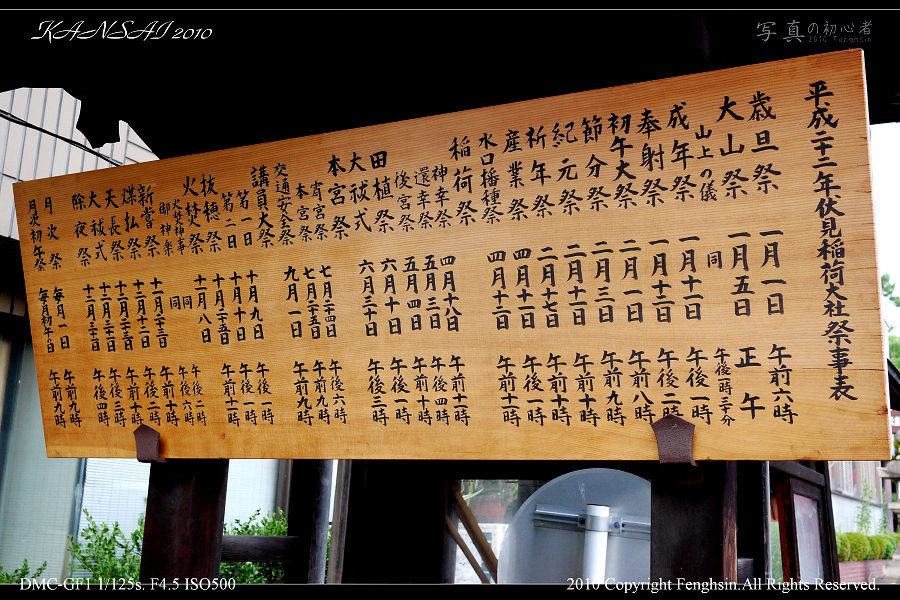 KANSAI 2010
写真の初心者
2010 Fenghsin
平成二十二年伏見稲荷大社祭事表
歳旦祭 一月一日 午前六時
大山祭 一月五日 正午
山上の儀 同 午後一時三十分
成年祭 一月十一日 午後一時
奉射祭 一月十二日 午後二時
初午大祭 二月一日 午前八時
節分祭 二月三日 午前九時
紀元祭 二月十一日 午前十時
祈年祭 二月十七日 午前十時
産業祭 四月一日 午後一時
水口播種祭 四月十二日 午前十一時
稲荷祭
神幸祭 四月十八日 午前十一時
還幸祭 五月三日 午後四時
後宮祭 五月四日 午前十時
田植祭 六月十日 午後一時
大祓式 六月三十日 午後三時
本宮祭
宵宮祭 七月二十四日 午後六時
本宮祭 七月二十五日 午前九時
交通安全祭 九月一日 午前九時
講員大祭
第一日 十月九日 午後一時
第二日 十月十日 午前
抜穂祭 十月二十五日
火焚祭 十一月八日 午後一時
火焚神事 同
御神楽 同 午後六時
新嘗祭 十一月二十三日 午前十時
煤払祭
天長祭 十二月二十三日 午前十時
大祓式 十二月三十一日
除夜祭 十二月三十一日 午後四時
月次祭 毎月一日 午前九時
月次初午祭 毎月初午の日 午前九時
DMC-GF1 1/125s. F4.5 ISO500
2010 Copyright Fenghsin.All Rights Reserved.